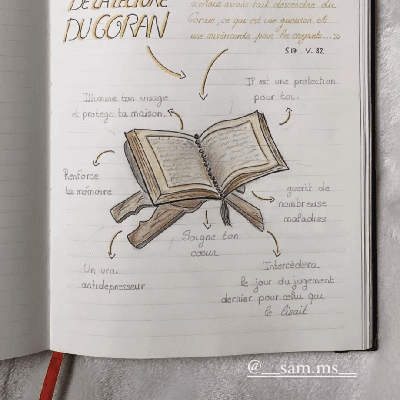 DE LA LECTURE
DU CORAN
avons fait descendre du
Coran, ce qui est une guérison et
une miséricorde pour les croyants... »
S17 V. 82
Illumine ton visage
et protège ta maison.
Il est une protection
pour toi.
Renforce
ta mémoire
guérit de
nombreuse
maladies
Soigne ton
cœur
Un vrai
antidépresseur
Intercèdera
le jour du jugement
dernier pour celui qui
le lisait
@__sam.ms__